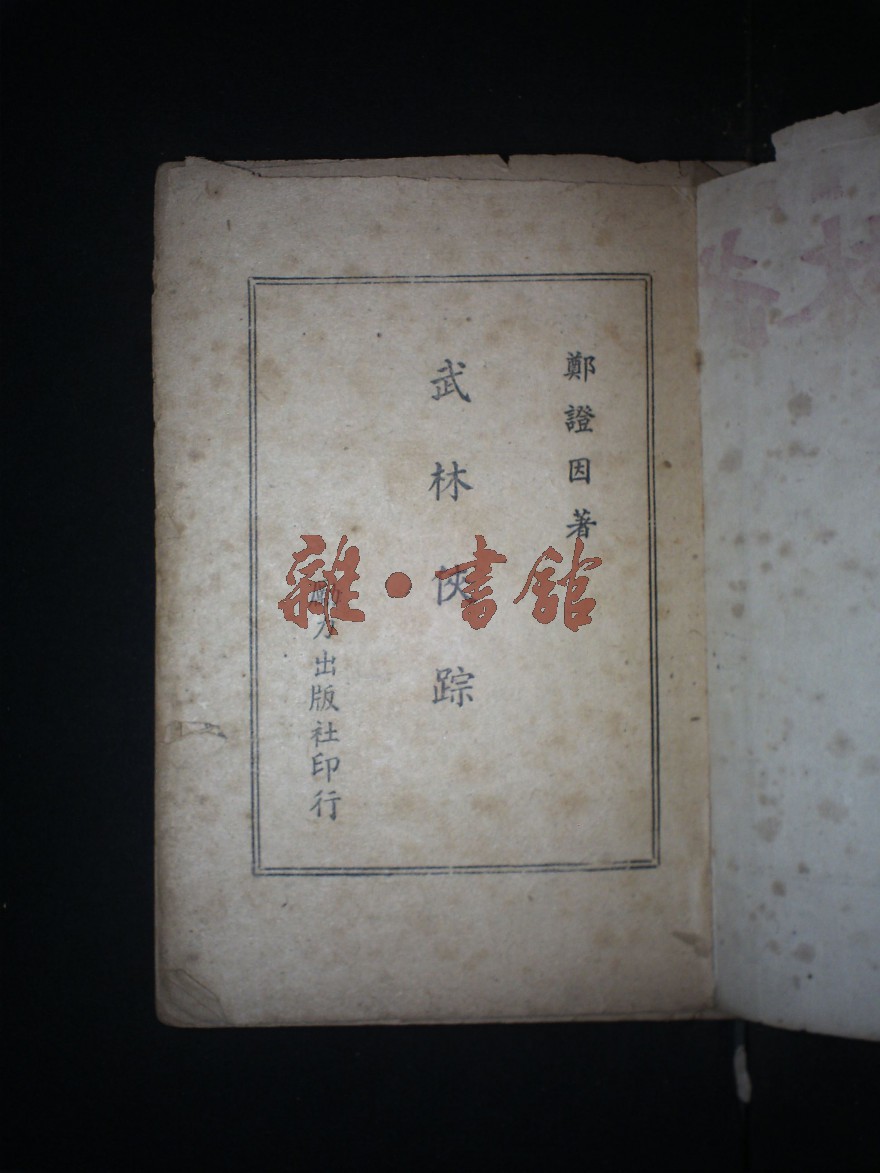 鄭證因著
武林俠踪
力出版社印行
雜·書館